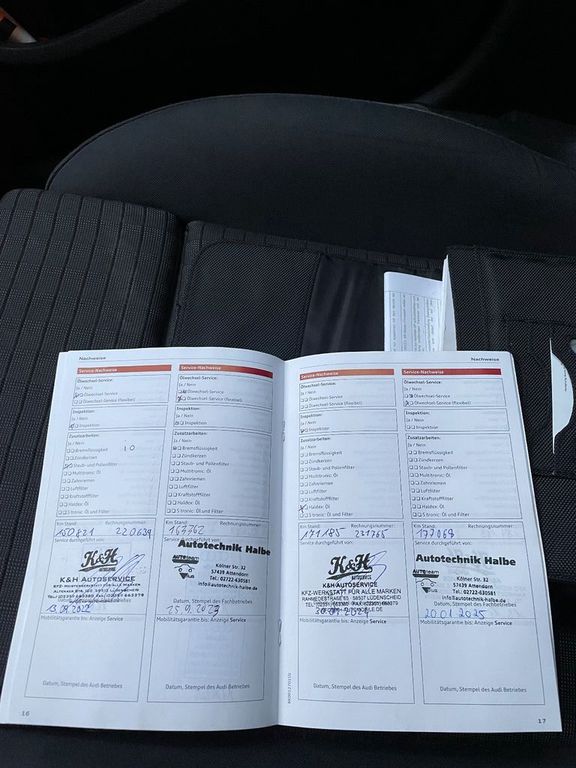 Nachweise
Service-Nachweise
Ölwechsel-Service:
Ja / Nein
Ölwechsel-Service
Ölwechsel-Service (flexibel)
Inspektion:
Ja / Nein
Inspektion
Zusatzarbeiten:
Ja / Nein
Bremsflüssigkeit
10
Zündkerzen
Staub- und Pollenfilter
Multitronic Öl
Zahnriemen
Luftfilter
Kraftstofffilter
Haldex Öl
S tronic: Öl und Filter
Km Stand:
Rechnungsnummer:
150821
220639
Service durchgeführt von:
K&H
K&H AUTOSERVICE
13.09.2022
Mobilitätsgarantie bis: Anzeige Service
Datum, Stempel des Audi Betriebes
16
Service-Nachweis
Ölwechsel-Service:
Ja / Nein
Ölwechsel-Service
Ölwechsel-Service (flexibel)
Inspektion:
Ja / Nein
Inspektion
Zusatzarbeiten:
Ja / Nein
Bremsflüssigkeit
Zündkerzen
Staub- und Pollenfilter
Multitronic Öl
Zahnriemen
Luftfilter
Kraftstofffilter
Haldex Öl
S tronic: Öl und Filter
Km Stand:
Rechnungsnummer:
163762
Autotechnik Halbe
Kölner Str. 32
57439 Attendorn
Tel.: 02722-630581
info@autotechnik-halbe.de
25.9.2023
Mobilitätsgarantie bis: Anzeige Service
Datum, Stempel des Audi Betriebes
Service-Nachweis
Ölwechsel-Service:
Ja / Nein
Ölwechsel-Service
Ölwechsel-Service (flexibel)
Inspektion:
Ja / Nein
Inspektion
Zusatzarbeiten:
Ja / Nein
Bremsflüssigkeit
Zündkerzen
Staub- und Pollenfilter
Multitronic Öl
Zahnriemen
Luftfilter
Kraftstofffilter
Haldex Öl
S tronic: Öl und Filter
Km Stand:
Rechnungsnummer:
171185
231765
Service durchgeführt von:
K&H
K&H AUTOSERVICE
KFZ-WERKSTATT FÜR ALLE MARKEN
Mobilitätsgarantie bis: Anzeige Service
Datum, Stempel des Audi Betriebes
Nachweise
Service-Nachweis
Ölwechsel-Service:
Ja / Nein
Ölwechsel-Service
Ölwechsel-Service (flexibel)
Inspektion:
Ja / Nein
Inspektion
Zusatzarbeiten:
Ja / Nein
Bremsflüssigkeit
Zündkerzen
Staub- und Pollenfilter
Multitronic Öl
Zahnriemen
Luftfilter
Kraftstofffilter
Haldex Öl
S tronic: Öl und Filter
Km Stand:
Rechnungsnummer:
177068
Autotechnik Halbe
Kölner Str. 32
57439 Attendorn
Tel.: 02722-630581
info@autotechnik-halbe.de
20.01.2025
Mobilitätsgarantie bis: Anzeige Service
Datum, Stempel des Audi Betriebes
17